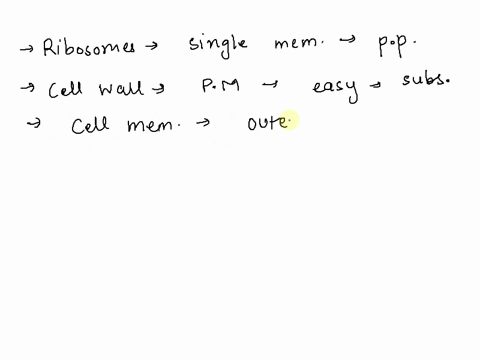 → Ribosomes → single mem. → p.p.
→ Cell wall → P.M → easy → subs.
→ Cell mem. → oute